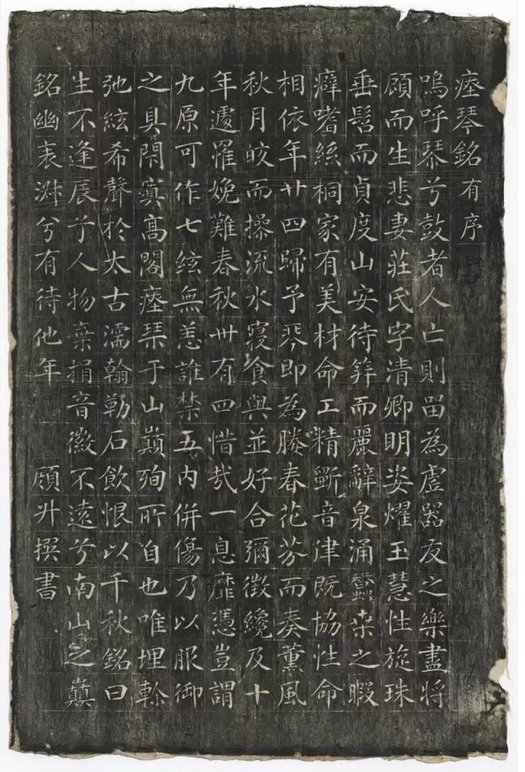 瘞琴銘有序
嗚呼琴兮鼓者人亡則畱為虛器友之樂盡將
顧而生悲妻莊氏字清卿明姿燿玉慧性旋珠
垂髫而貞度山安待筓而麗辭泉涌蠶桒之暇
癖嗜絲桐家有美材命工精斲音律既協性命
相依年廿四歸予琴即為媵春花芬而奏薰風
秋月皎而操流水寢食與並好合彌徵纔及十
年遽罹娩難春秋卅有四惜哉一息靡憑豈謂
九原可作七絃無恙誰禁五內併傷乃以服御
之具閇寘高閣瘞琹于山巔殉所自也唯埋幹
弛絃希聲於太古濡翰勒石飲恨以千秋銘曰
生不逢辰兮人物棄捐音徽不遠兮南山之巔
銘幽表淵兮有待他年 顧升撰書